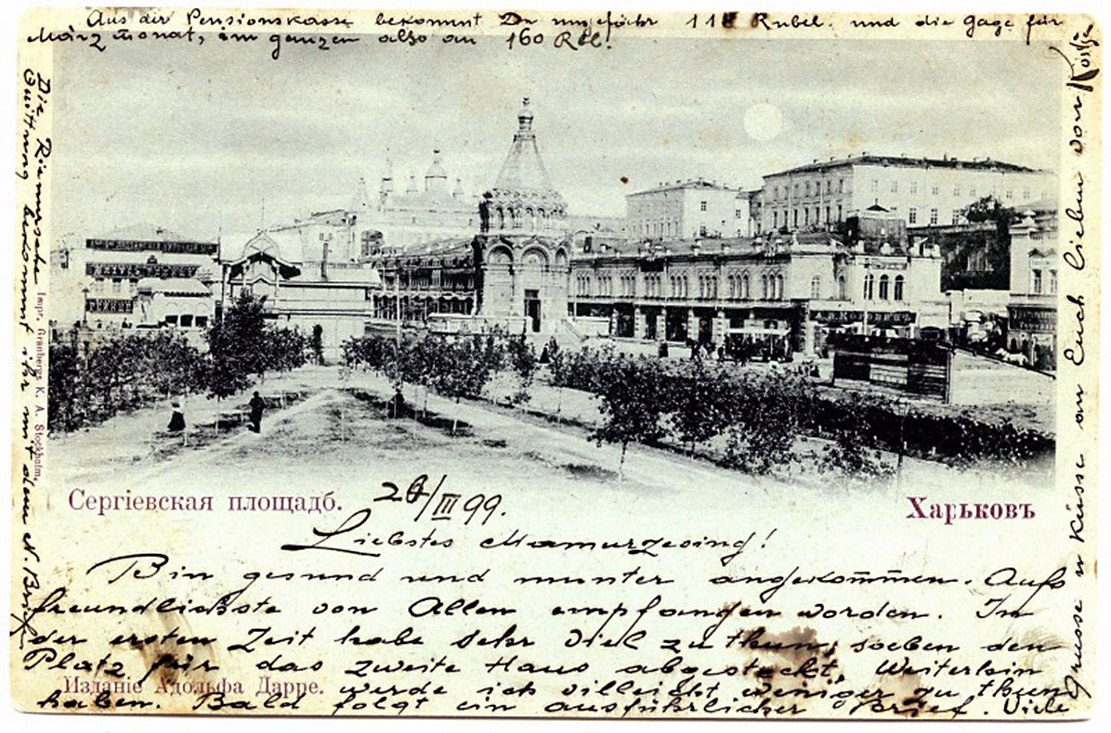 Aus der Pensionskasse bekommt Du ungefähr 118 Rubel. und die Gage für
März monat, im ganzen also an 160 Rbl.
Сергіевская площадб.
Харьковъ
20/III 99.
Liebstes Mamurzesing!
Bin gesund und munter angekom̄en. Aufs
freundlichste von Allen empfangen worden. Im
der ersten Zeit habe sehr viel zu thun; soeben den
Platz für das zweite Haus abgesteckt. Weiterhin
Изданіе Адольфа Дарре.
werde ich villeicht weniger zu thun
haben. Bald folgt ein ausführlicher Brief. Viele
Grüsse u Küsse an Euch Lieben von Kostja
Die Riemersche
Quittung bekommt ihr mit dem N. Brief
Impr. Granbergs K. A. Stockholm.